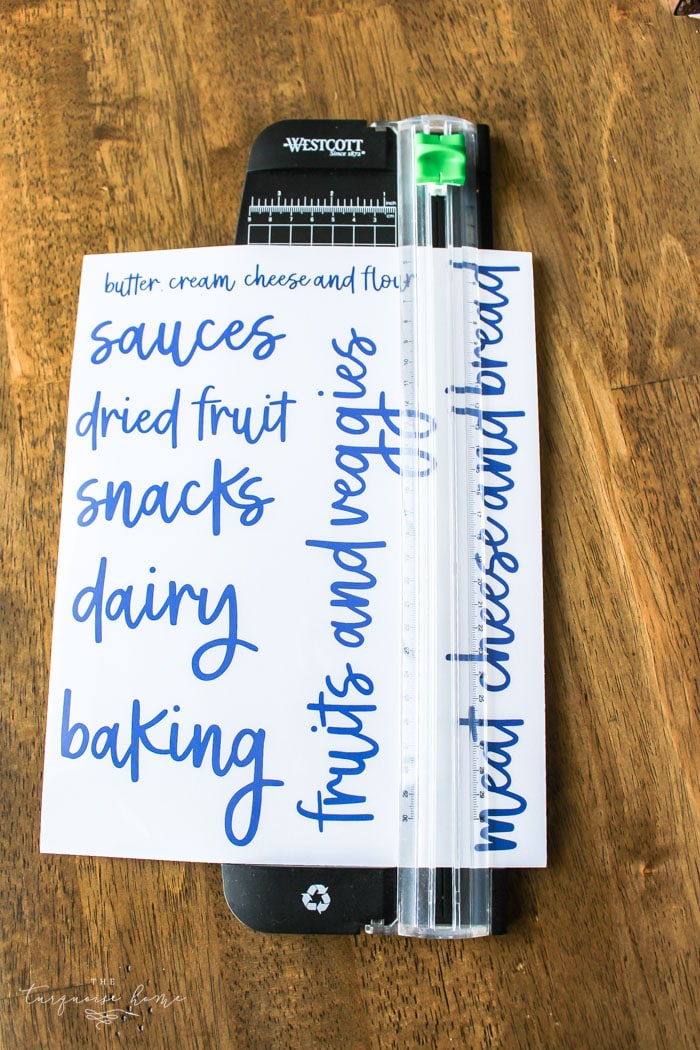 WESTCOTT
Since 1872®
butter, cream cheese and flour
sauces
dried fruit
snacks
dairy
baking
fruits and veggies
meat cheese and bread
THE
turquoise home